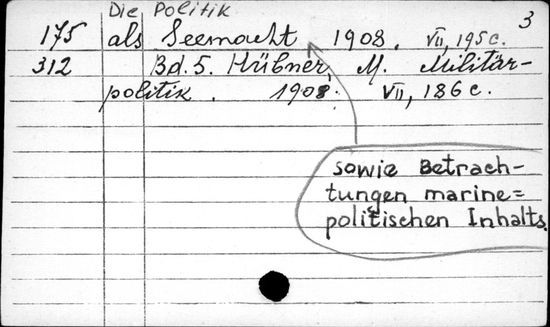 Die Politik
3
175 als Seemacht 1908. VII, 195c.
312 Bd. 5. Hübner, M. Militär-
politik. 1908. VII, 186c.
sowie Betrach-
tungen marine=
politischen Inhalts.